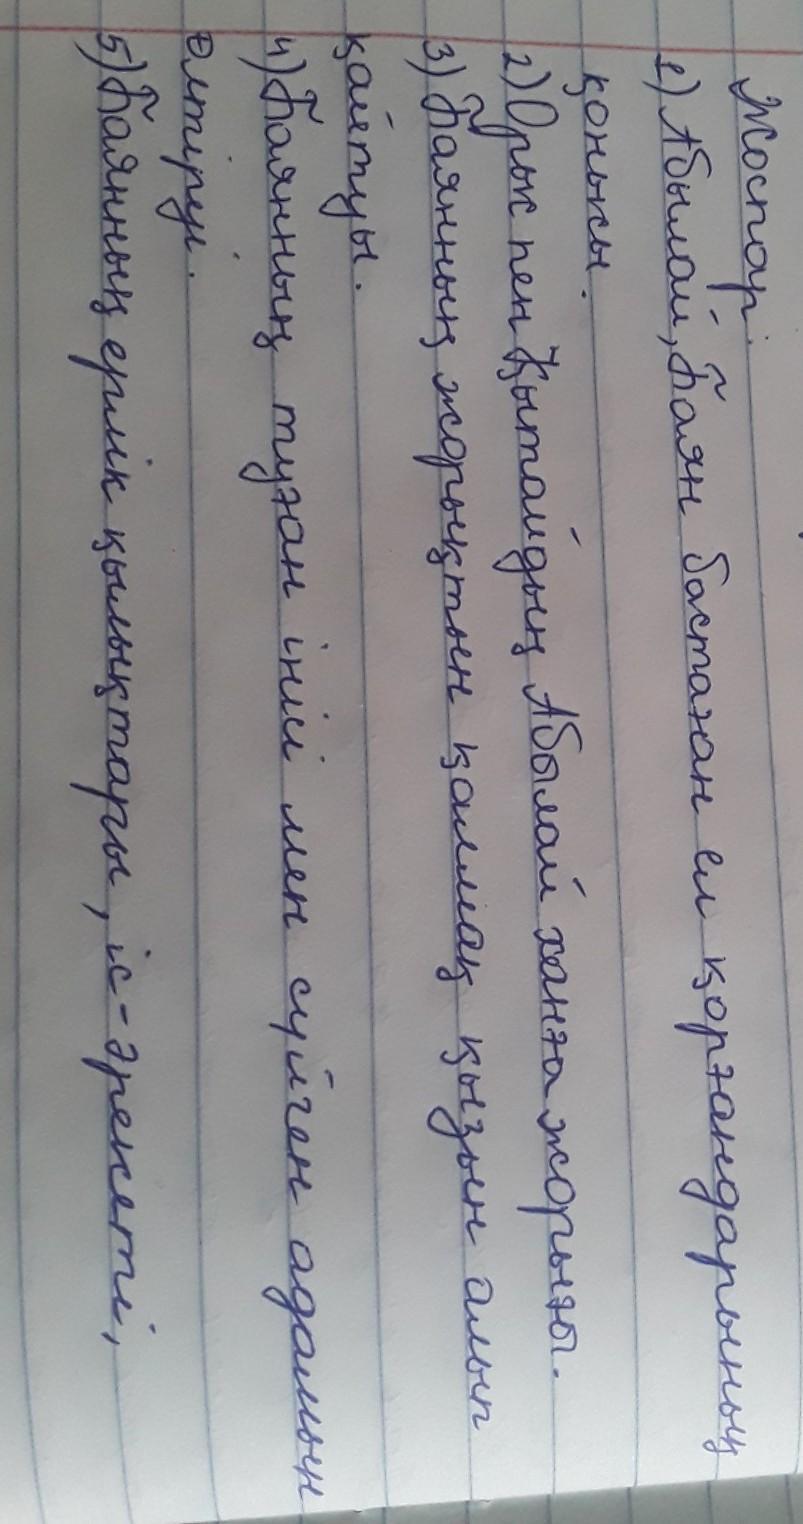 Жоспар.
1) Абылай, Баян бастаған ел қорғандарының
қонысы.
2) Орыс пен Қытайдың Абылай ханға жорығы.
3) Баянның жорықтын қалмақ қызын алып
қайтуы.
4) Баянның туған інісі мен сүйген адамын
өлтіруі.
5) Баянның ерлік қылықтары, іс-әрекеті,